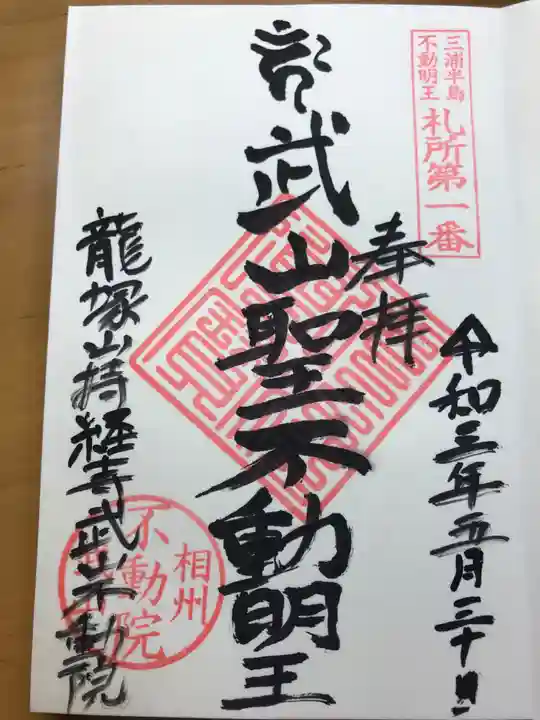 三浦半島
不動明王
札所第一番
奉拝
令和三年五月三十日
武山聖不動明王
龍塚山持経寺武山不動院
相州
不動院